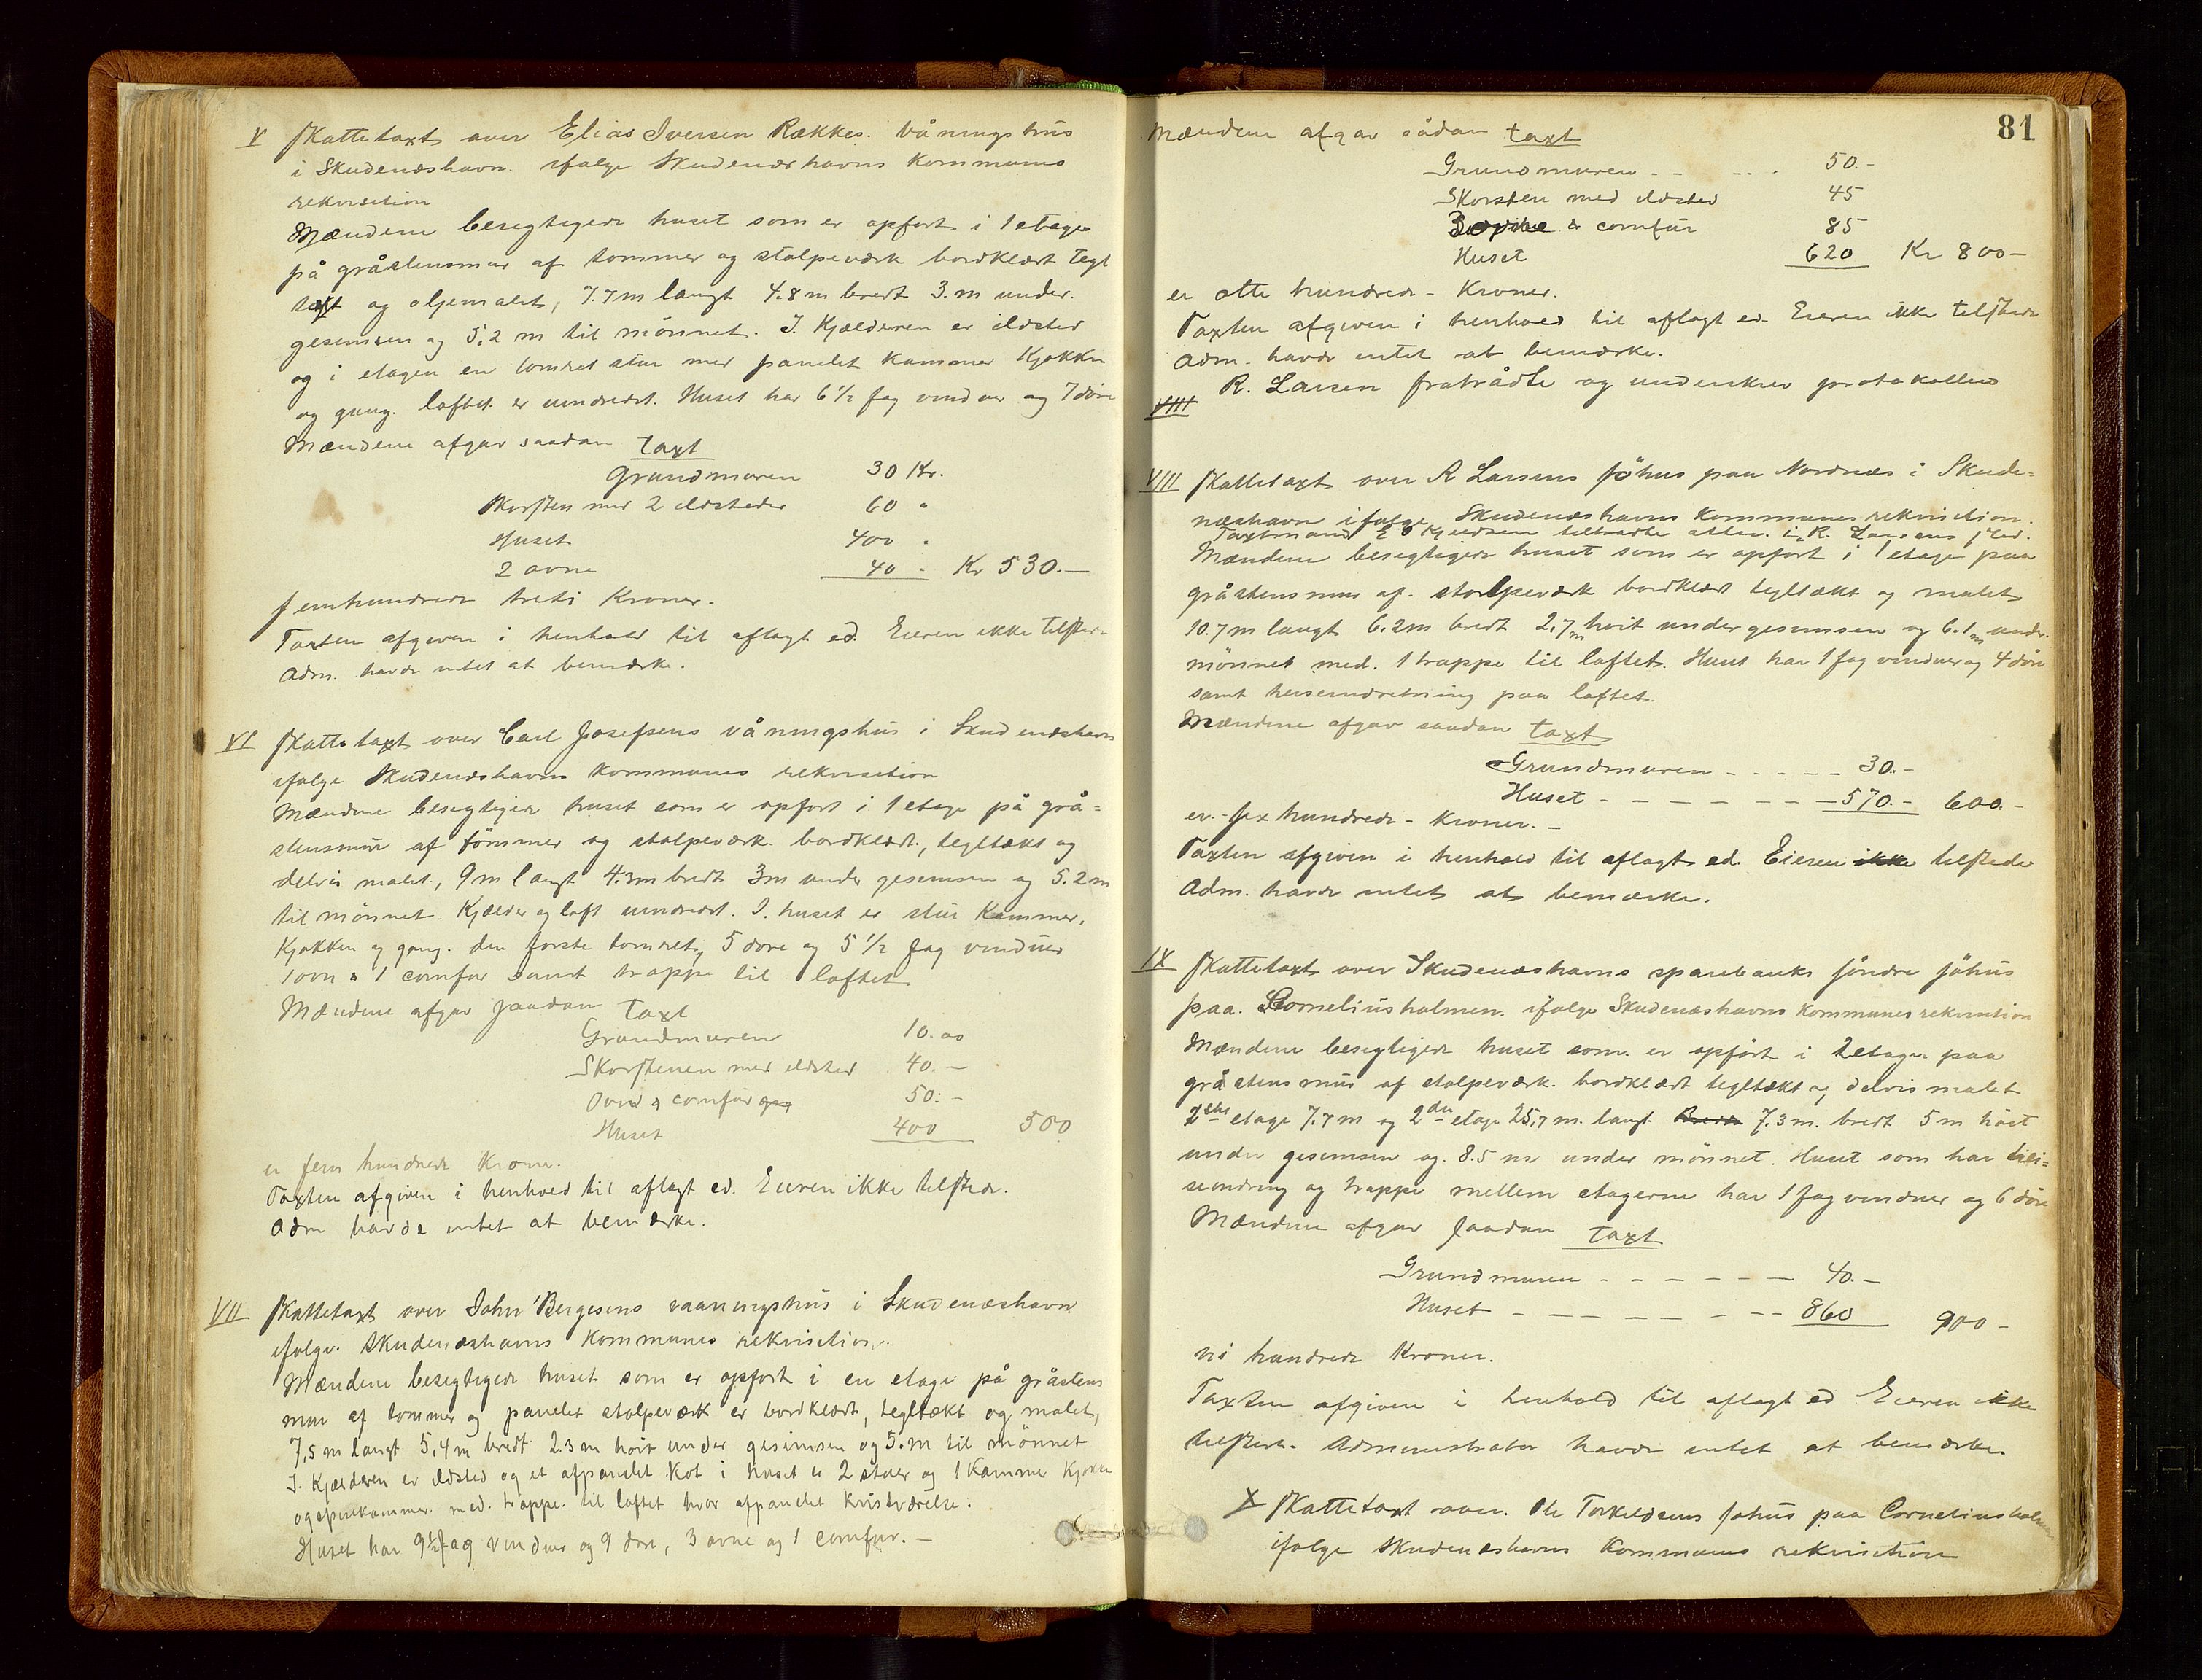 V Skattetaxt over Elias Iversen Rækkes. våningshus
i Skudeneshavn. ifølge Skudeneshavns Kommunes
rekvisition
Mændene besigtigede huset som er opført i 1 etage
på gråstensmur af tømmer og stolpeværk bordklædt tegl
tækt og oljemalet, 7.7 m langt 4.8 m bredt 3. m under.
gesimsen og 5,2 m til mønnet. I. Kjælderen er ildsted
og i etagen en tømret stue med panelet kammer Kjøkken
og gang. loftet er uindredet. Huset har 6 1/2 fag vinduer og 7 døre
Mændene afgav saadan taxt
Grundmuren 30 Kr.
Skorsten med 2 ildsteder 60 "
Huset 400 "
2 ovne 40 " Kr 530.—
femhundrede treti Kroner.
Taxten afgiven i henhold til aflagt ed. Eieren ikke tilstede.
Adm. havde intet at bemærke.
VI Skattetaxt over Carl Josefsens våningshus i Skudeneshavn
ifølge Skudeneshavns Kommunes rekvisition
Mændene besigtigede huset som er opført i 1 etage på grå=
stensmur af tømmer og stolpeværk. bordklædt, tegltækt og
delvis malet, 9 m langt 4.3m bredt 3m under gesimsen og 5.2 m
til mønnet. Kjælder og loft uindredet. I. huset er stue Kammer,
Kjøkken og gang. den første tømret, 5 døre og 5 1/2 fag vinduer
1 ovn & 1 comfur samt trappe til loftet
Mændene afgav saadan taxt
Grundmuren 10.00
Skorstenen med ildsted 40.—
Ovn & comfur 50.—
Huset 400 500
er fem hundrede Kroner.
Taxten afgiven i henhold til aflagt ed. Eieren ikke tilstede.
Adm havde intet at bemærke.
VII Skattetaxt over John Bergesens vaaningshus i Skudeneshavn
ifølge. Skudeneshavns Kommunes rekvisition.
Mændene besigtigede huset som er opført i en etage på gråstens
mur af tømmer og panelet stolpeværk er bordklædt, tegltækt og malet,
7,5 m langt 5,4 m bredt 2.3 m høit under gesimsen og 5. m til mønnet
I. Kjælderen er ildsted og et afpanelet Kot i huset er 2 stuer og 1 Kammer Kjøkken
og spisekammer. med. trappe. til loftet hvor afpanelet Kvistværelse.
Huset har 9 1/2 fag vinduer og 9 døre, 3 ovne og 1 comfur. —
81
Mændene afgav sådan taxt
Grundmuren - - - - - 50.-
Skorsten med ildsted 45
3 ovne & comfur 85
Huset 620 Kr 800 —
er otte hundrede - Kroner.
Taxten afgiven i henhold til aflagt ed. Eieren ikke tilstede
Adm. havde intet at bemærke.
R. Larsen fratrådte og underskrev protokollen
VIII
VIII Skattetaxt over R Larsens søhus paa Nordnæs i Skude=
neshavn ifølge Skudeneshavns Kommunes rekvisition.
Taxtmand tiltrådte atter. i R. Larsens sted.
Mændene besigtigede huset som er opført i 1 etage paa
gråstensmur af. stolpeværk bordklædt tegltækt og malet
10.7 m langt 6.2m bredt 2,7 m høit under gesimsen og 6.1 m under
mønnet med. 1 trappe til loftet. Huset har 1 fag vinduer og 4 døre
samt heiseindretning paa loftet.
Mændene afgav saadan taxt
Grundmuren - - - - - 30.-
Huset - - - - - - - 570.- 600.-
er - sex hundrede - Kroner. -
Taxten afgiven i henhold til aflagt ed. Eieren ikke tilstede
Adm. havde intet at bemærke.
IX Skattetaxt over Skudeneshavns sparebanks søndre søhus
paa. Corneliusholmen. ifølge Skudeneshavns Kommunes rekvisition
Mændene besigtigede huset som. er opført i 2 etager paa
gråstensmur af stolpeværk. bordklædt tegltækt og delvis malet
etage 7.7 m og 2den etage 25,7 m. langt 7.3 m. bredt 5 m høit
under gesimsen og. 8.5 m under mønnet. Huset som har
og trappe mellem etagerne har 1 fag vinduer og 6 døre
Mændene afgav saadan taxt
Grundmuren - - - - - - 40.—
Huset - - - - - - - 860 900 -
ni hundrede Kroner.
Taxten afgiven i henhold til aflagt ed Eieren ikke
tilstede. Administrator havde intet at bemærke
X Skattetaxt over. Ole Torkeldsens søhus paa Corneliusholmen
ifølge Skudeneshavns Kommunes rekvisition